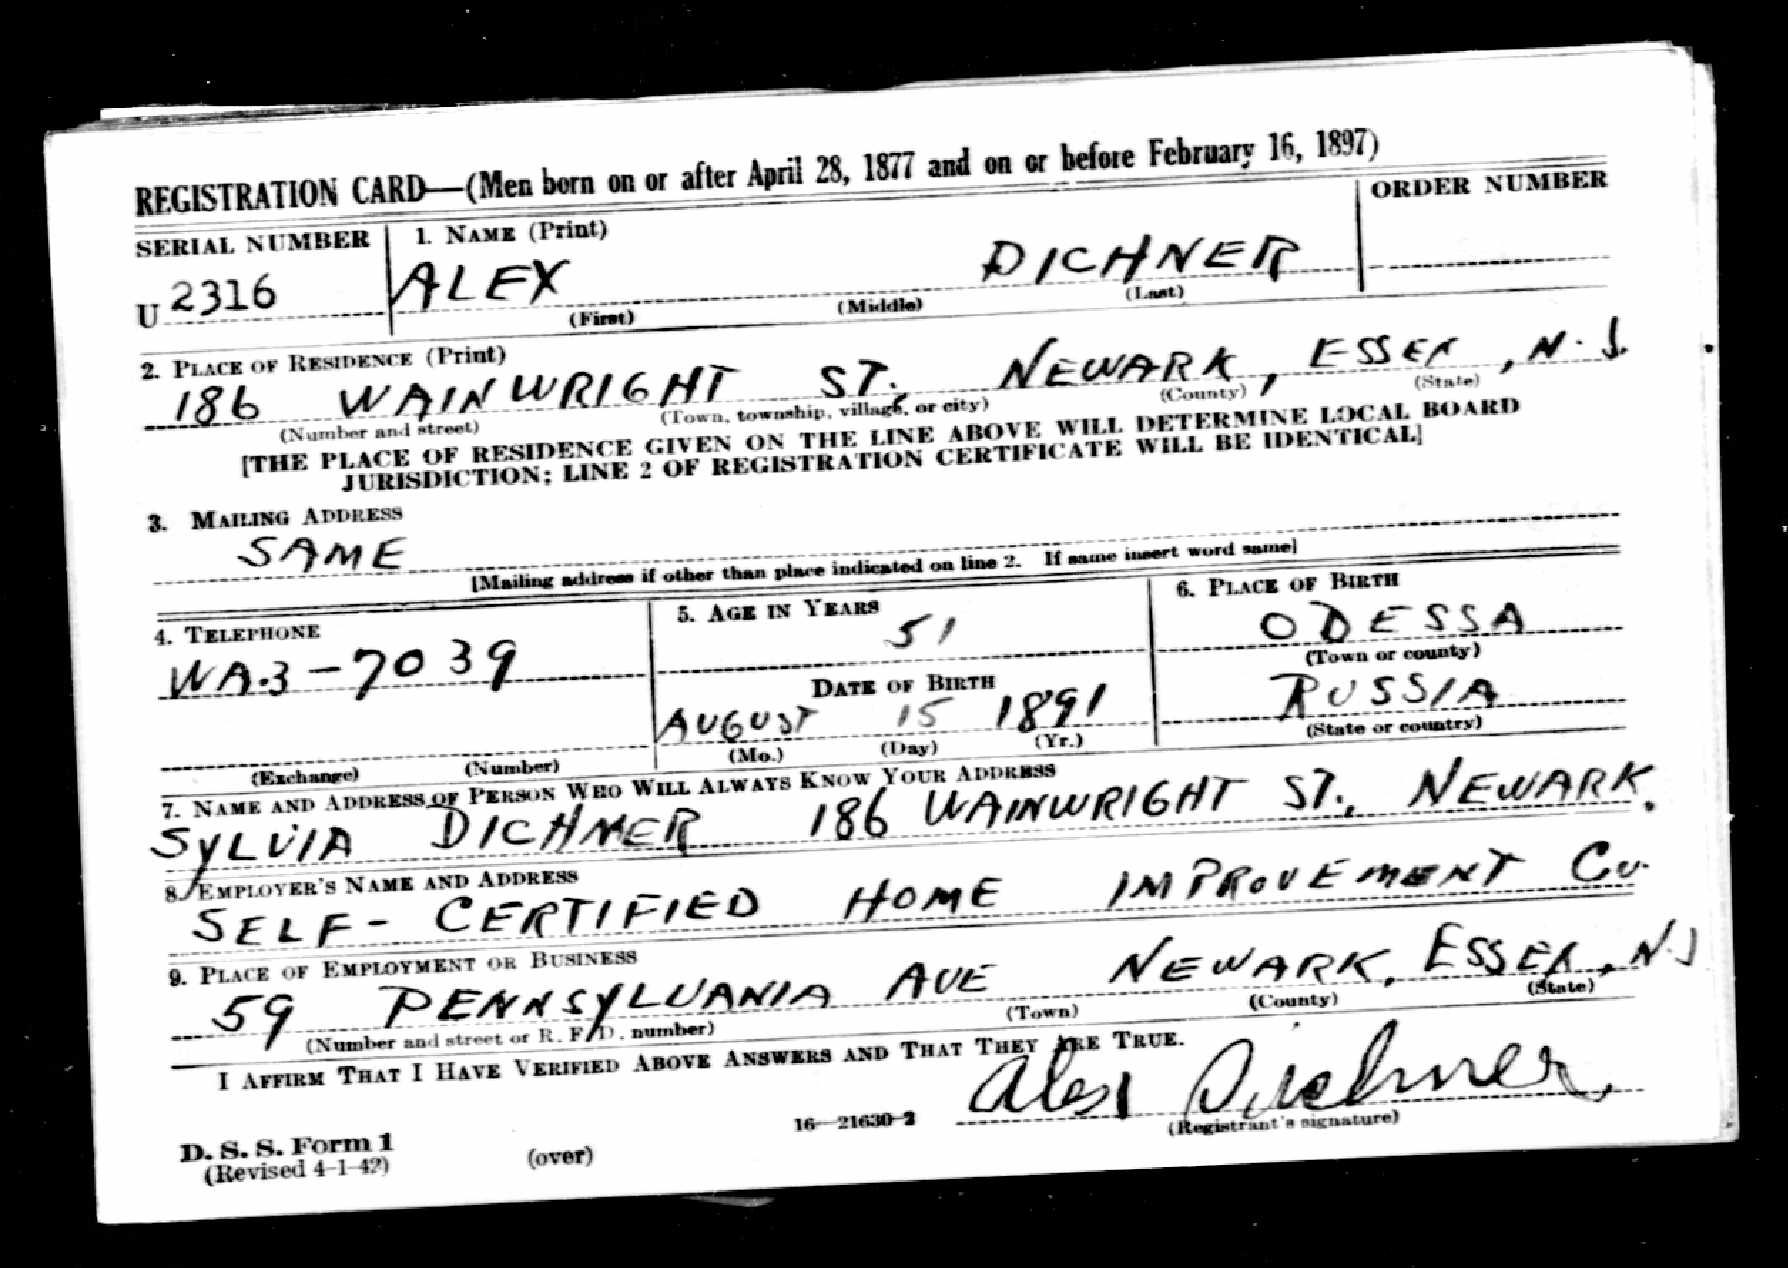 REGISTRATION CARD—(Men born on or after April 28, 1877 and on or before February 16, 1897)
SERIAL NUMBER 1. NAME (Print) ORDER NUMBER
U 2316 ALEX DICHNER
(First) (Middle) (Last)
2. PLACE OF RESIDENCE (Print)
186 WAINWRIGHT ST. NEWARK, ESSEX, N.J.
(Number and street) (Town, township, village, or city) (County) (State)
[THE PLACE OF RESIDENCE GIVEN ON THE LINE ABOVE WILL DETERMINE LOCAL BOARD
JURISDICTION; LINE 2 OF REGISTRATION CERTIFICATE WILL BE IDENTICAL]
3. MAILING ADDRESS
SAME
[Mailing address if other than place indicated on line 2. If same insert word same]
4. TELEPHONE 5. AGE IN YEARS 6. PLACE OF BIRTH
WA.3-7039 51 ODESSA
(Town or county)
DATE OF BIRTH RUSSIA
AUGUST 15 1891 (State or country)
(Exchange) (Number) (Mo.) (Day) (Yr.)
7. NAME AND ADDRESS OF PERSON WHO WILL ALWAYS KNOW YOUR ADDRESS
SYLVIA DICHNER 186 WAINWRIGHT ST., NEWARK.
8. EMPLOYER'S NAME AND ADDRESS
SELF- CERTIFIED HOME IMPROVEMENT Co.
9. PLACE OF EMPLOYMENT OR BUSINESS
59 PENNSYLVANIA AVE NEWARK, ESSEX, N.J
(Number and street or R. F. D. number) (Town) (County) (State)
I AFFIRM THAT I HAVE VERIFIED ABOVE ANSWERS AND THAT THEY ARE TRUE.
Alex Dichner
D. S. S. Form 1 16—21630-2 (Registrant's signature)
(Revised 4-1-42) (over)